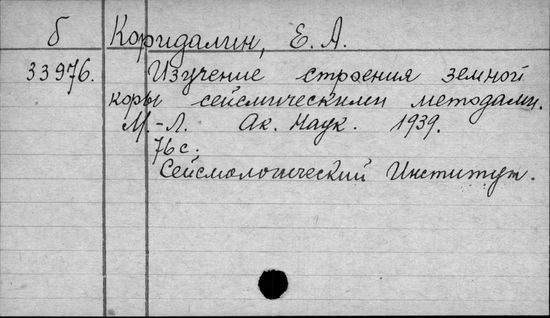 б Коридалин, Е. А.
33976. Изучение строения земной
коры сейсмическими методами.
М.-Л. Ак. Наук. 1939.
76 с.
Сейсмологический Институт.